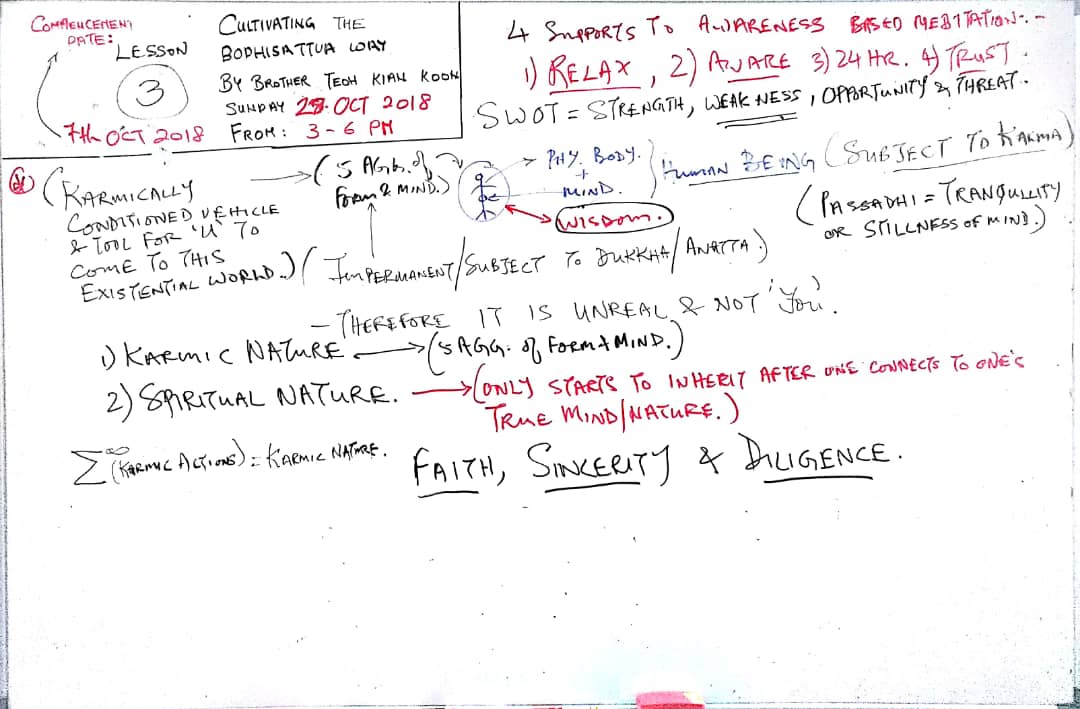 COMMENCEMENT
DATE:
LESSON
3
7th OCT 2018
CULTIVATING THE
BODHISATTVA WAY
BY BROTHER TEOH KIAN KOON
SUNDAY 28 OCT 2018
FROM: 3-6 PM
4 SUPPORTS TO AWARENESS BASED MEDITATION:-
1) RELAX, 2) AWARE 3) 24 HR. 4) TRUST.
SWOT = STRENGTH, WEAKNESS, OPPORTUNITY & THREAT.
(KARMICALLY
CONDITIONED VEHICLE
& TOOL FOR 'U' TO
COME TO THIS
EXISTENTIAL WORLD.)
(5 Agg. of
Form & MIND.)
PHY. BODY.
+
MIND.
WISDOM.
HUMAN BEING (SUBJECT TO KARMA)
(PASSADHI = TRANQUILITY
OR STILLNESS OF MIND.)
(IMPERMANENT/SUBJECT TO DUKKHA/ANATTA.)
- THEREFORE IT IS UNREAL & NOT 'You'.
1) KARMIC NATURE → (5 AGG. of FORM & MIND.)
2) SPIRITUAL NATURE. → (ONLY STARTS TO INHERIT AFTER ONE CONNECTS TO ONE'S
TRUE MIND/NATURE.)
∑∞ (KARMIC ACTIONS) = KARMIC NATURE.
FAITH, SINCERITY & DILIGENCE.